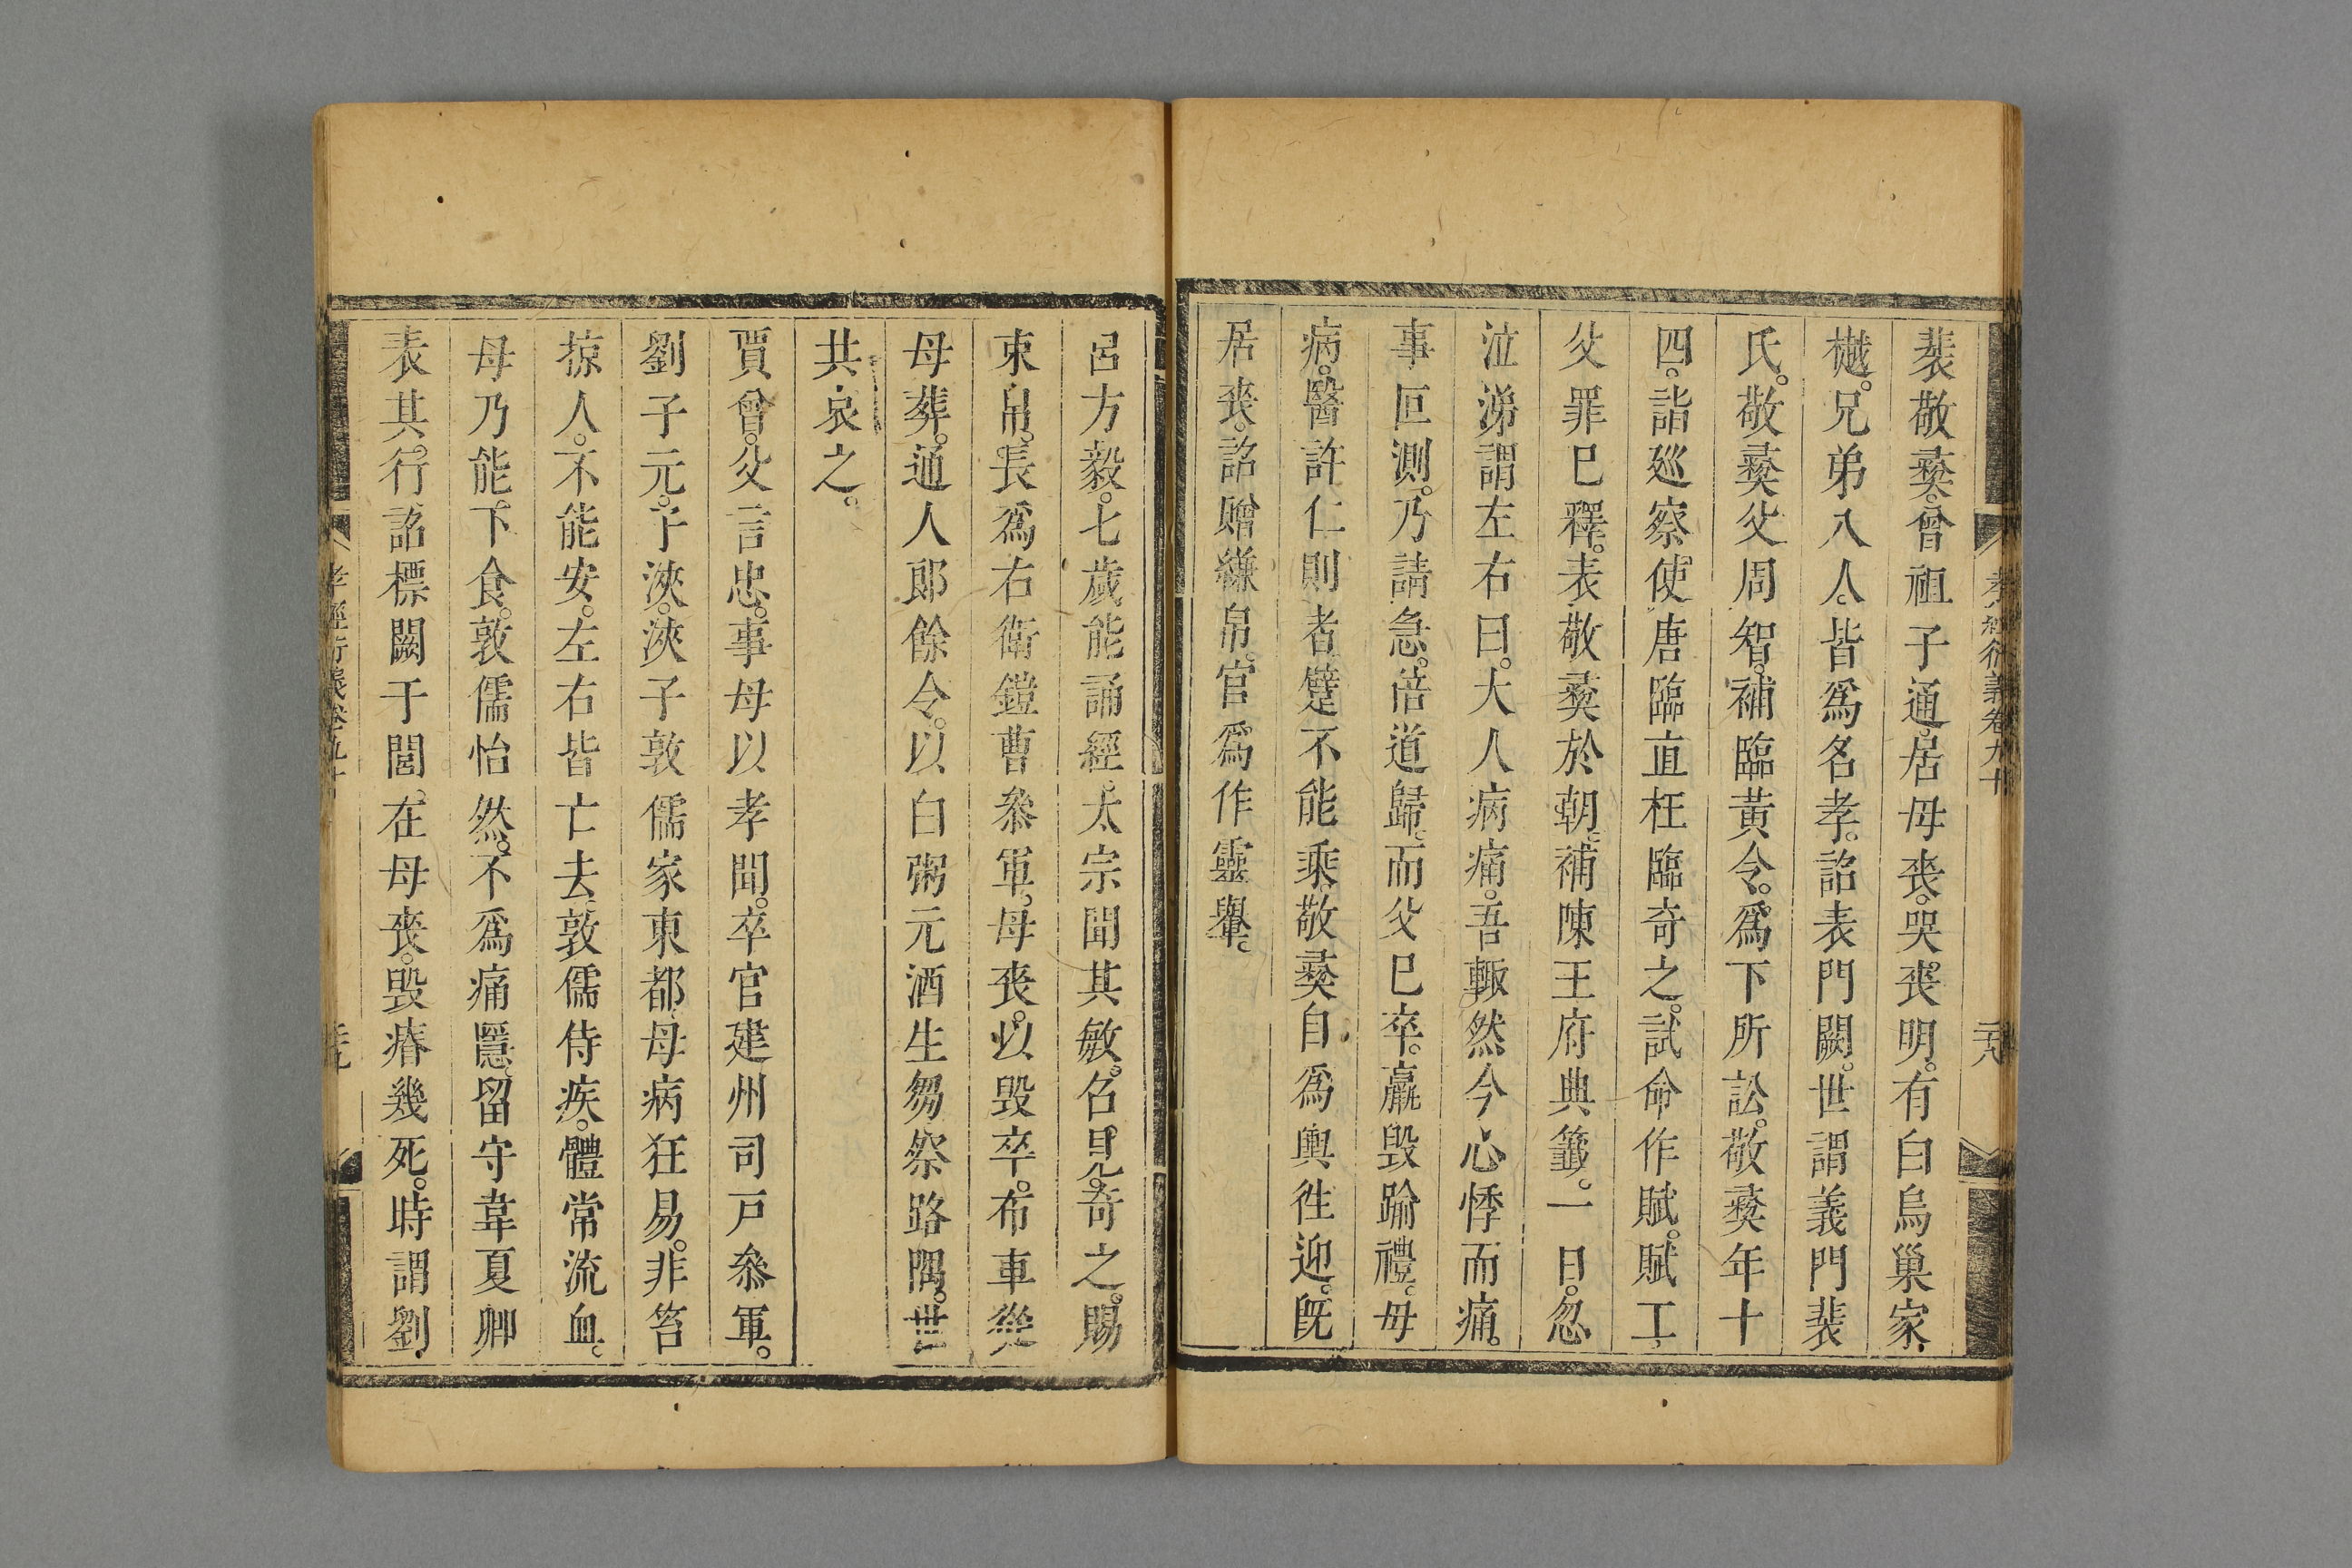 孝經衍義卷九十
裴敬彛。曾祖子通。居母喪。哭喪明。有白烏巢冢
樾。兄弟八人。皆爲名孝。詔表門闕。世謂義門裴
氏。敬彛父周智。補臨黃令。爲下所訟。敬彛年十
四。詣廵察使唐臨直枉。臨奇之。試命作賦。賦工。
父罪巳釋。表敬彛於朝。補陳王府典籖。一日。忽
泣涕謂左右曰。大人病痛。吾輙然。今心悸而痛。
事叵測。乃請急。倍道歸。而父巳卒。羸毁踰禮。母
病。醫許仁則者躄不能乘。敬彛自爲輿徃迎。旣
居喪。詔贈縑帛。官爲作靈轝。
呂方毅。七歲能誦經。太宗聞其敏。召見。奇之。賜
束帛。長爲右衛鎧曹叅軍。母喪。以毁卒。布車從
母葬。通人郎餘令。以白粥元酒生芻。祭路隅。世
共哀之。
賈曾。父言忠。事母以孝聞。卒官建州司戸叅軍。
劉子元。子浹。浹子敦儒。家東都。母病狂易。非笞
掠人。不能安。左右皆亡去。敦儒侍疾。體常流血。
母乃能。下食。敦儒怡然。不爲痛隱。留守韋夏卿
表其。行詔標闕于閭。在母喪。毁瘠幾死。時謂劉
孝經衍義卷九十